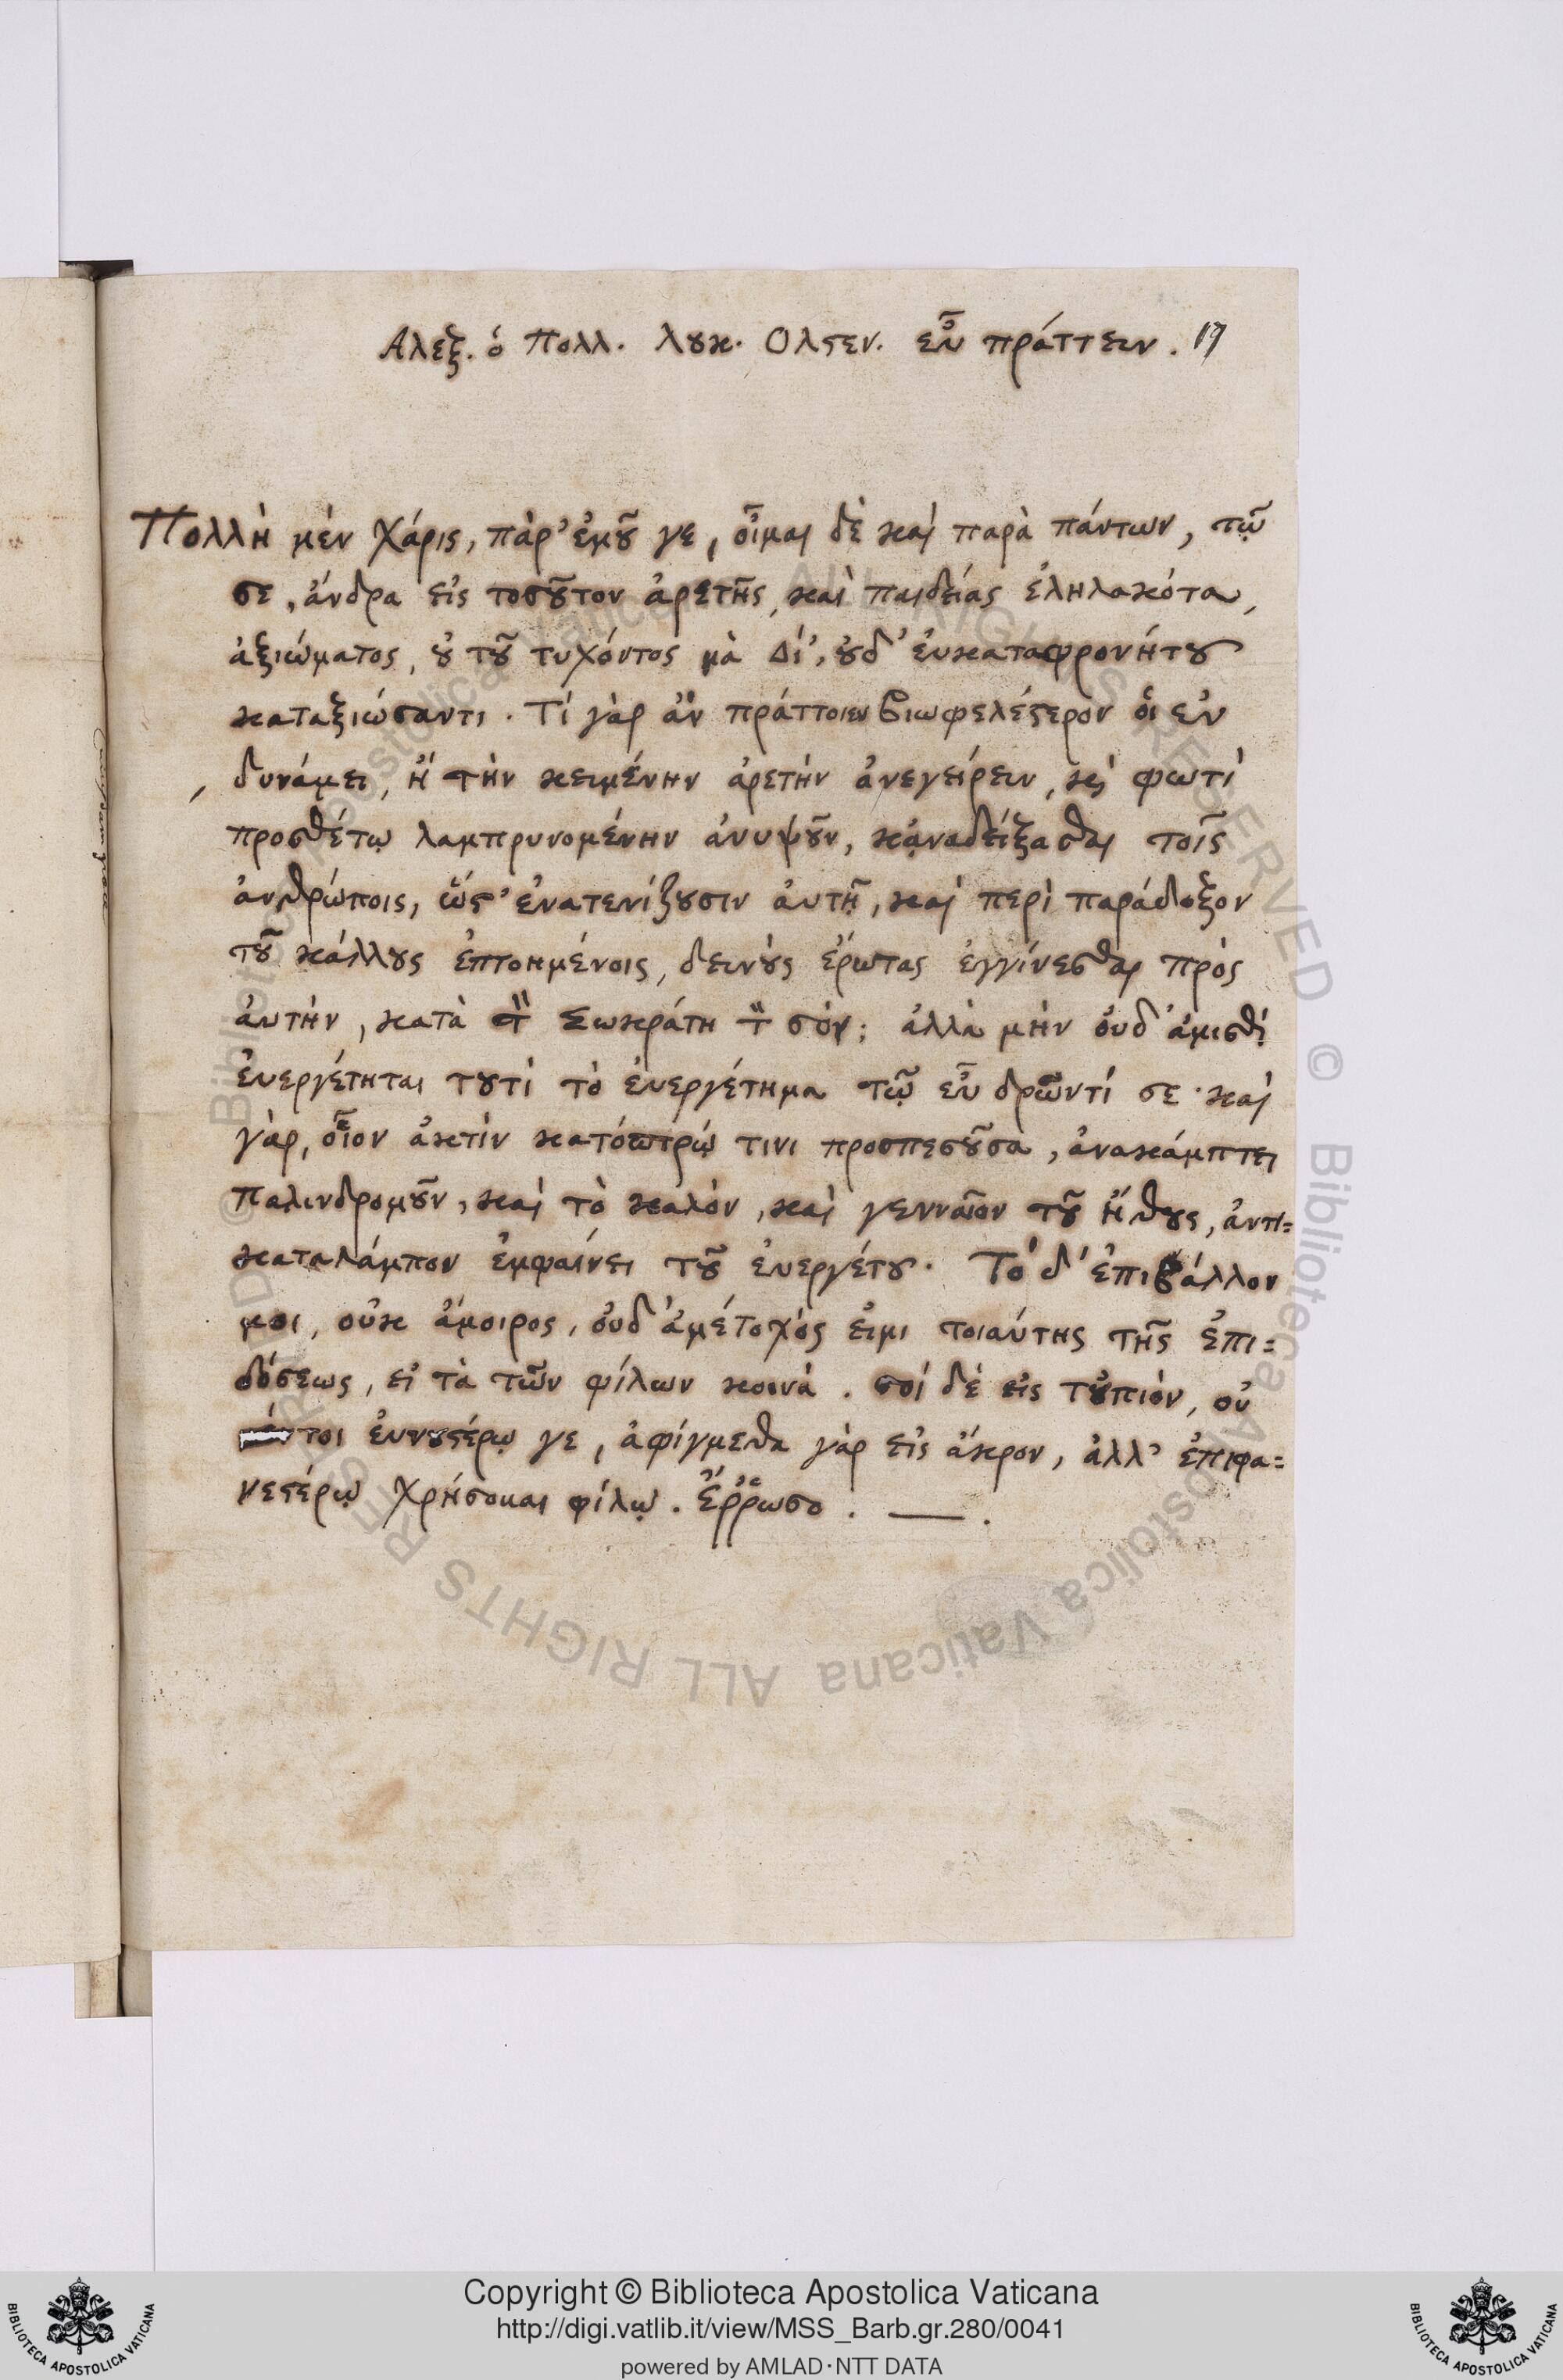 Αλεξ. ὁ Πολλ. Λȣκ. Ολστεν. εὖ πράττειν. 19
Πολλὴ μὲν χάρις, πὰρ’ ἐμȣ͂ γε, οἶμαι δὲ καὶ παρὰ πάντων, τῷ
σε, ἄνδρα εἰς τοσȣ͂τον ἀρετῆς, καὶ παιδείας ἐληλακότα,
ἀξιώματος, ȣ̓ τȣ͂ τυχόντος μὰ Δί’, ȣ̓δ’ ἐυκαταφρονήτȣ
καταξιώσαντι. Τί γὰρ ἂν πράττοιεν βιωφελέστερον ὁι ἐν
δυνάμει, ἢ τὴν κειμένην ἀρετὴν ἀνεγείρειν, κὶ φωτὶ
προσθέτῳ λαμπρυνομένην ἀνυψȣ͂ν, κᾀναδείξασθαι τοῖς
ἀνθρώποις, ὥστ’ ἐνατενίζȣσιν ἀυτῇ, καὶ περὶ παράδοξον
τȣ͂ κάλλȣς ἐπτοημένοις, δεινȣ̀ς ἔρωτας ἐγγίνεσθαι πρὸς
ἀυτὴν, κατὰ τὸν Σωκράτη τὸν σόν; ἀλλὰ μὴν ὀυδ’ ἀμισθὶ
ἐυεργέτηται τȣτὶ τὸ ἐυεργέτημα τῷ εὖ δρῶντί σε· καὶ
γὰρ, οἷον ἀκτὶν κατόπτρῳ τινι προσπεσȣ͂σα, ἀνακάμπτει
παλινδρομȣ͂ν, καὶ τὸ καλὸν, καὶ γενναῖον τȣ͂ ἤθȣς, ἀντι=
καταλάμπον ἐμφαίνει τȣ͂ ἐυεργέτȣ. Τὸ δ’ ἐπιβάλλον
μοι, οὐκ ἄμοιρος, ὀυδ’ ἀμέτοχός εἰμι τοιαύτης τῆς ἐπι=
δόσεως, εἰ τὰ τῶν φίλων κοινά. σοί δέ εἰς τȣ̓πιὸν, οὐ
τοι ἐυνȣστέρῳ γε, ἀφίγμεθα γὰρ εἰς ἄκρον, ἀλλ’ ἐπιφα=
νεστέρῳ χρήσομαι φίλῳ. Ἔῤῥωσο. —.
Copyright © Biblioteca Apostolica Vaticana
http://digi.vatlib.it/view/MSS_Barb.gr.280/0041
powered by AMLAD·NTT DATA
BIBLIOTECA APOSTOLICA VATICANA
BIBLIOTECA APOSTOLICA VATICANA